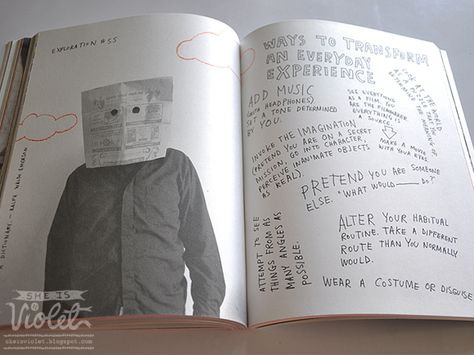 EXPLORATION #55
A DICTIONARY. — RALPH WALDO EMERSON
WAYS TO TRANSFORM
AN EVERYDAY
EXPERIENCE
ADD MUSIC
(WITH HEADPHONES)
SET A TONE DETERMINED
BY YOU.
SEE EVERYTHING
AS A FILM. YOU
ARE THE FILMMAKER
EVERYTHING IS
A SOURCE.
MAKE A MOVIE
WITH YOUR EYES.
LOOK AT THE WORLD
INVOKE THE IMAGINATION
(PRETEND YOU ARE ON A SECRET
MISSION, GO INTO CHARACTER,
PERCEIVE INANIMATE OBJECTS
AS REAL).
PRETEND YOU ARE SOMEONE
ELSE. "WHAT WOULD ____ DO?"
ATTEMPT TO SEE
THINGS FROM AS
MANY ANGLES AS
POSSIBLE.
ALTER YOUR HABITUAL
ROUTINE. TAKE A DIFFERENT
ROUTE THAN YOU NORMALLY
WOULD.
WEAR A COSTUME OR DISGUISE
SHE IS
Violet
sheisviolet.blogspot.com